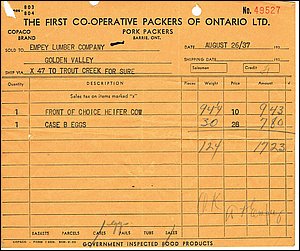 PHONE 803
804
No 49527
THE FIRST CO-OPERATIVE PACKERS OF ONTARIO LTD.
COPACO
BRAND
PORK PACKERS
BARRIE, ONT.
SOLD TO EMPEY LUMBER COMPANY DATE AUGUST 26/37 193
GOLDEN VALLEY SHIPPING DATE 193
SHIP VIA X 47 TO TROUT CREEK FOR SURE Salesman Credit
DESCRIPTION
Sales tax on items marked "x"
1 FRONT OF CHOICE HEIFER COW 94 10 9.43
1 CASE B EGGS 30 26 7 80
124 17 23
OK
BASKETS PARCELS CASES PAILS TUBS SALES
GOVERNMENT INSPECTED FOOD PRODUCTS